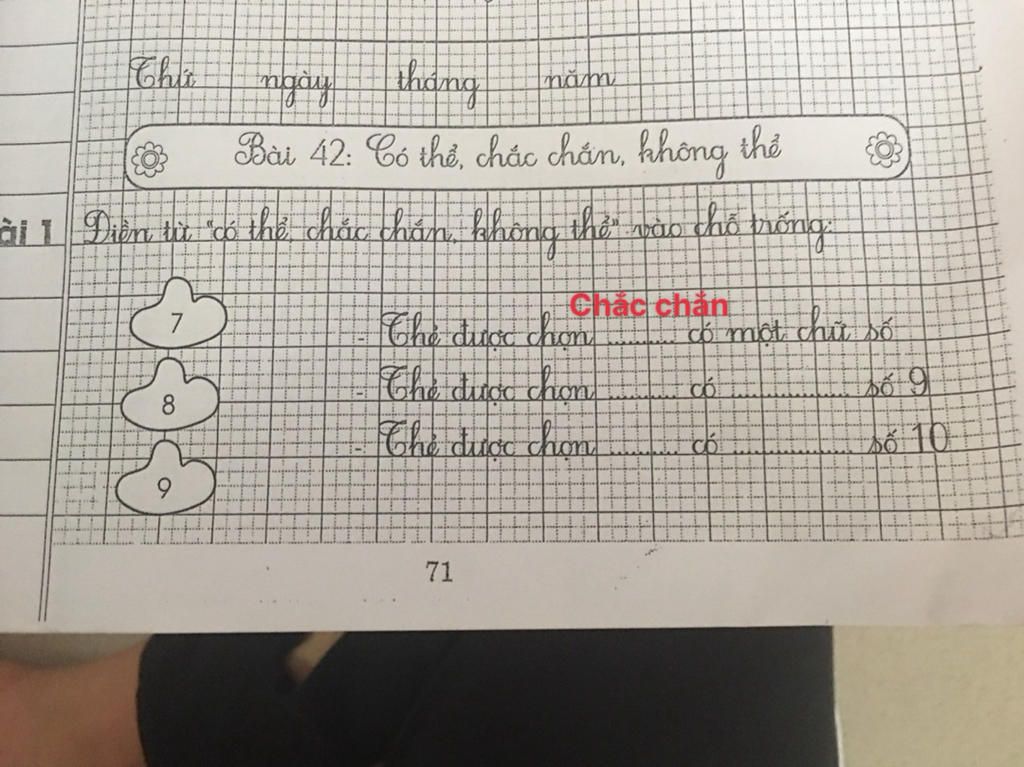 Thứ ngày tháng năm
Bài 42: Có thể, chắc chắn, không thể
ài 1 Điền từ "có thể, chắc chắn, không thể" vào chỗ trống:
7
Chắc chắn
- Thẻ được chọn .......... có một chữ số
8
- Thẻ được chọn .......... có ................ số 9
- Thẻ được chọn .......... có ................ số 10
9
71